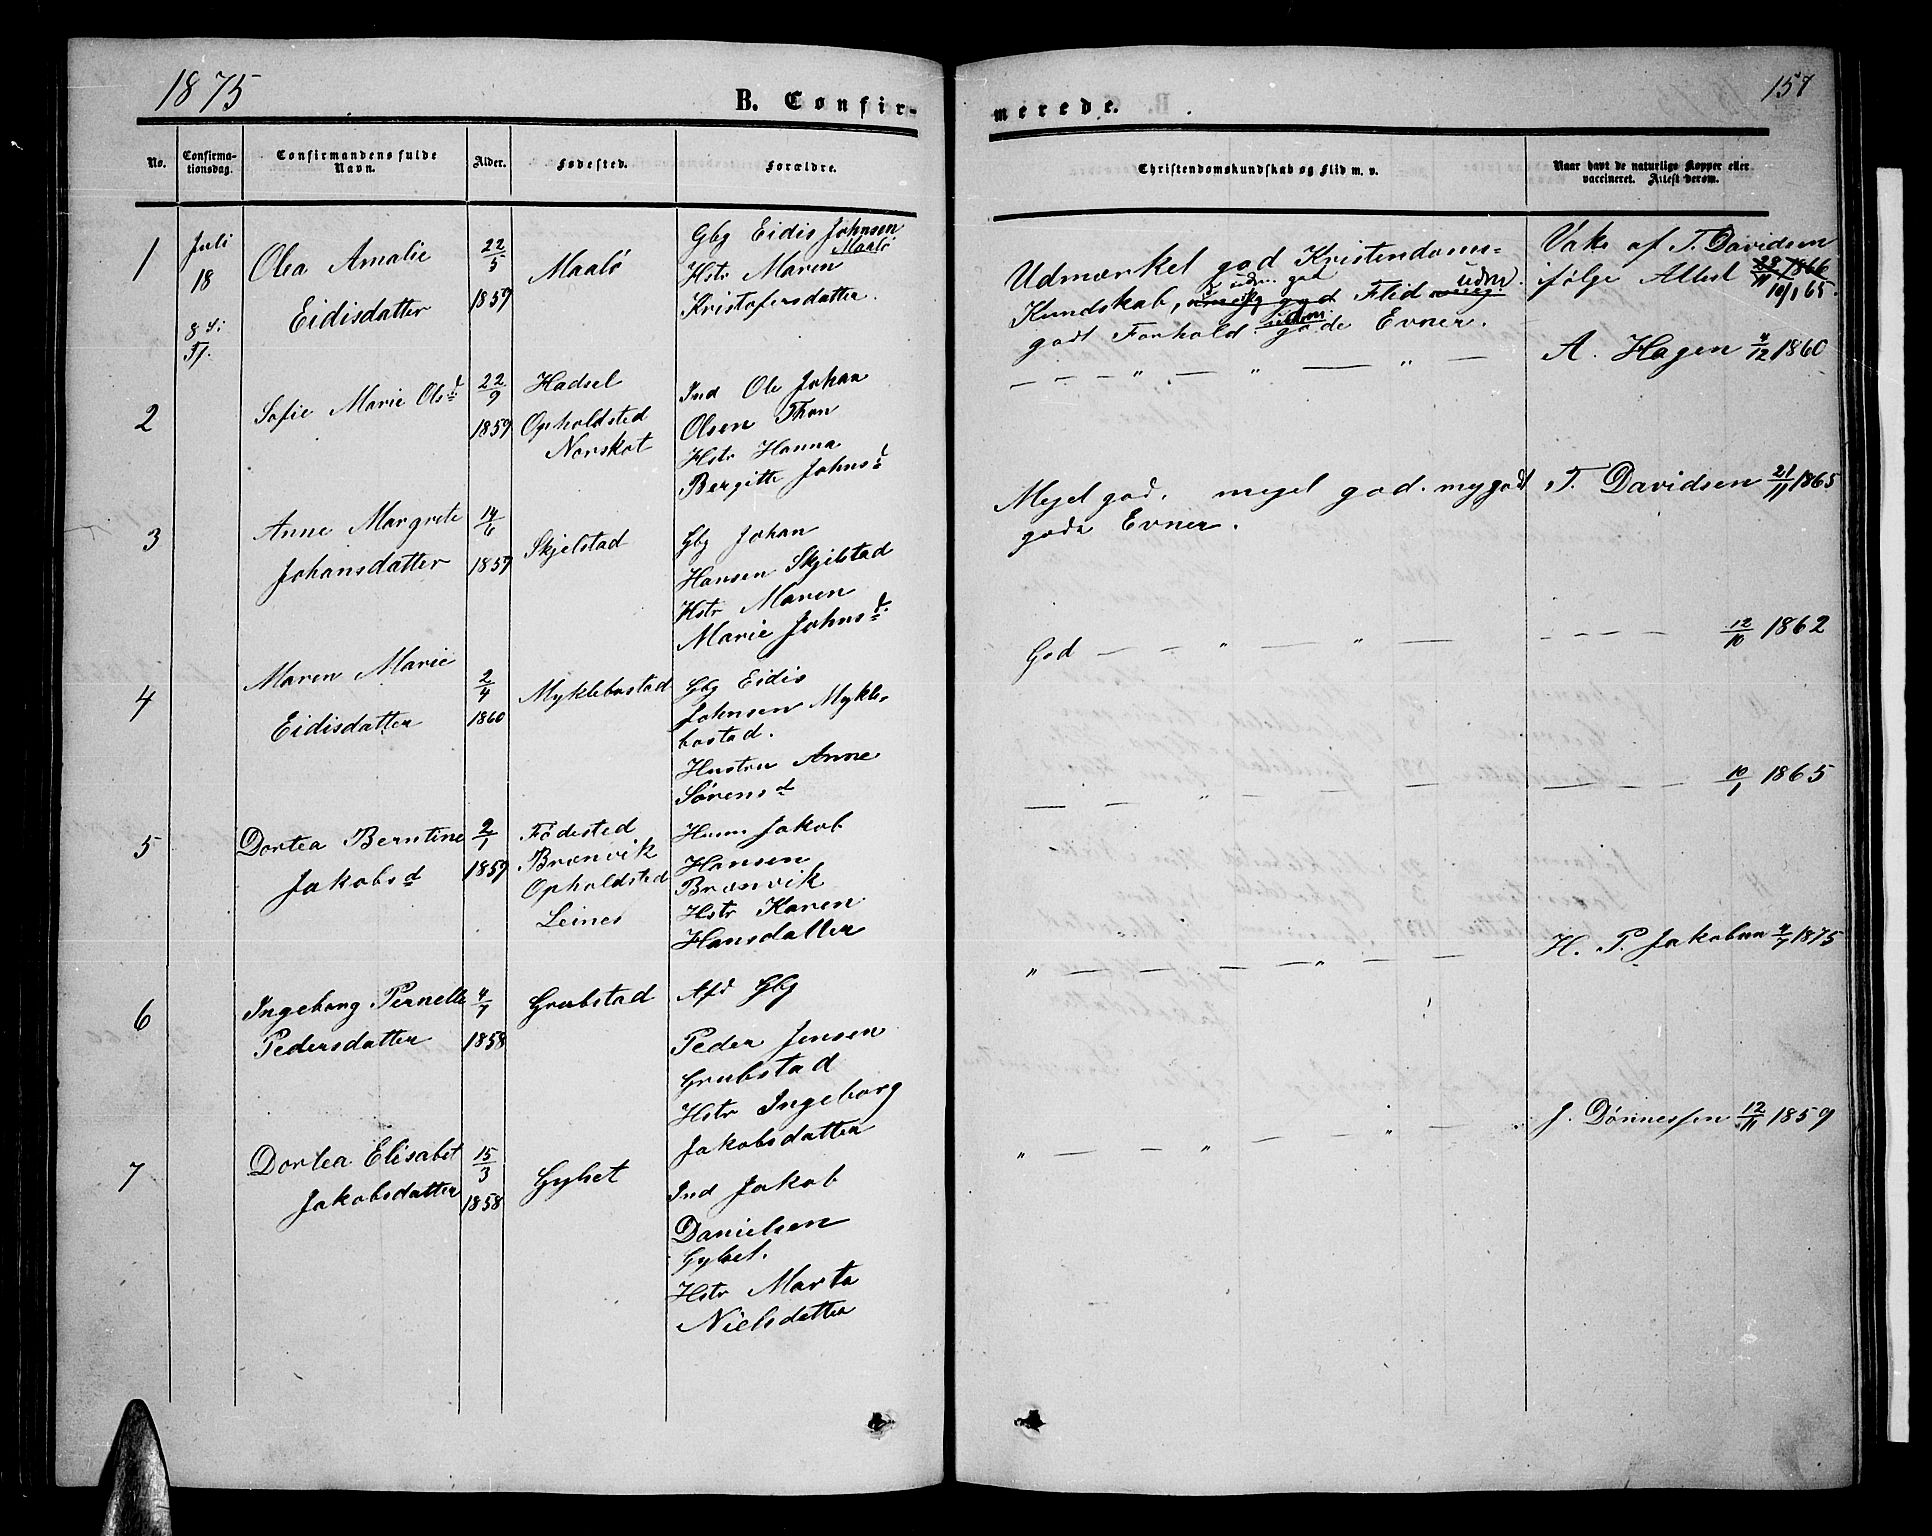 1875
B. Confir-
merede.
157
No.
Confirma-
tionsdag.
Confirmandens fulde
Navn.
Alder.
Fødested.
Forældre.
Christendomskundskab og Flid m. v.
Naar havt de naturlige Kopper eller
vaccineret. Attest derom.
1
Juli
18
8 S. i
Tf.
Olea Amalie
Eidisdatter
22/5
1859
Maalø
Gbg Eidis Johnsen
Maalø
Hstr Maren
Kristofersdatter.
Udmærket god Kristendoms-
Kundskab, udm. god Flid udm.
godt Forhold. udm. gode Evner.
Vaks af T. Davidsen
ifølge Attest 28/11 1866
10/1 65.
2
Sofie Marie Olsd
22/9
1859
Hadsel
Opholdsted
Norskot
Ind Ole Johan
Olsen Thon
Hstr Hanna
Bergitte Johnsd
— — — „ — „ — „ —
A. Hagen 4/12 1860
3
Anne Margrete
Johansdatter
14/6
1859
Skjelstad
Gbg Johan
Hansen Skjelstad
Hstr Maren
Marie Johnsd
Meget god. meget god. meg godt
gode Evner.
T. Davidsen 21/11 1865
4
Maren Marie
Eidisdatter
2/4
1860
Myklebostad
Gbg Eidis
Johnsen Mykle-
bostad.
Hustru Anne
Sørensd
God — — „ — „ —
- - - - 12/10 1862
5
Dortea Berntine
Jakobsd
2/1
1859
Fødested
Brænvik
Opholdsted
Leines
Huum Jakob
Hansen
Brænvik
Hstr Karen
Hansdatter
— — — „ — — — —
— — — — 10/1 1865
6
Ingeborg Pernelle
Pedersdatter
4/7
1858
Grubstad
Afd Gbg
Peder Jensen
Grubstad
Hstr Ingeborg
Jakobsdatter
„ — — — — „ — —
H. P. Jakobsen 4/7 1875
7
Dortea Elisabet
Jakobsdatter
15/3
1858
Gylset
Ind Jakob
Danielsen
Gylset.
Hstr Marta
Nielsdatter
„ — — „ — — „ —
J. Dønnessen 12/11 1859